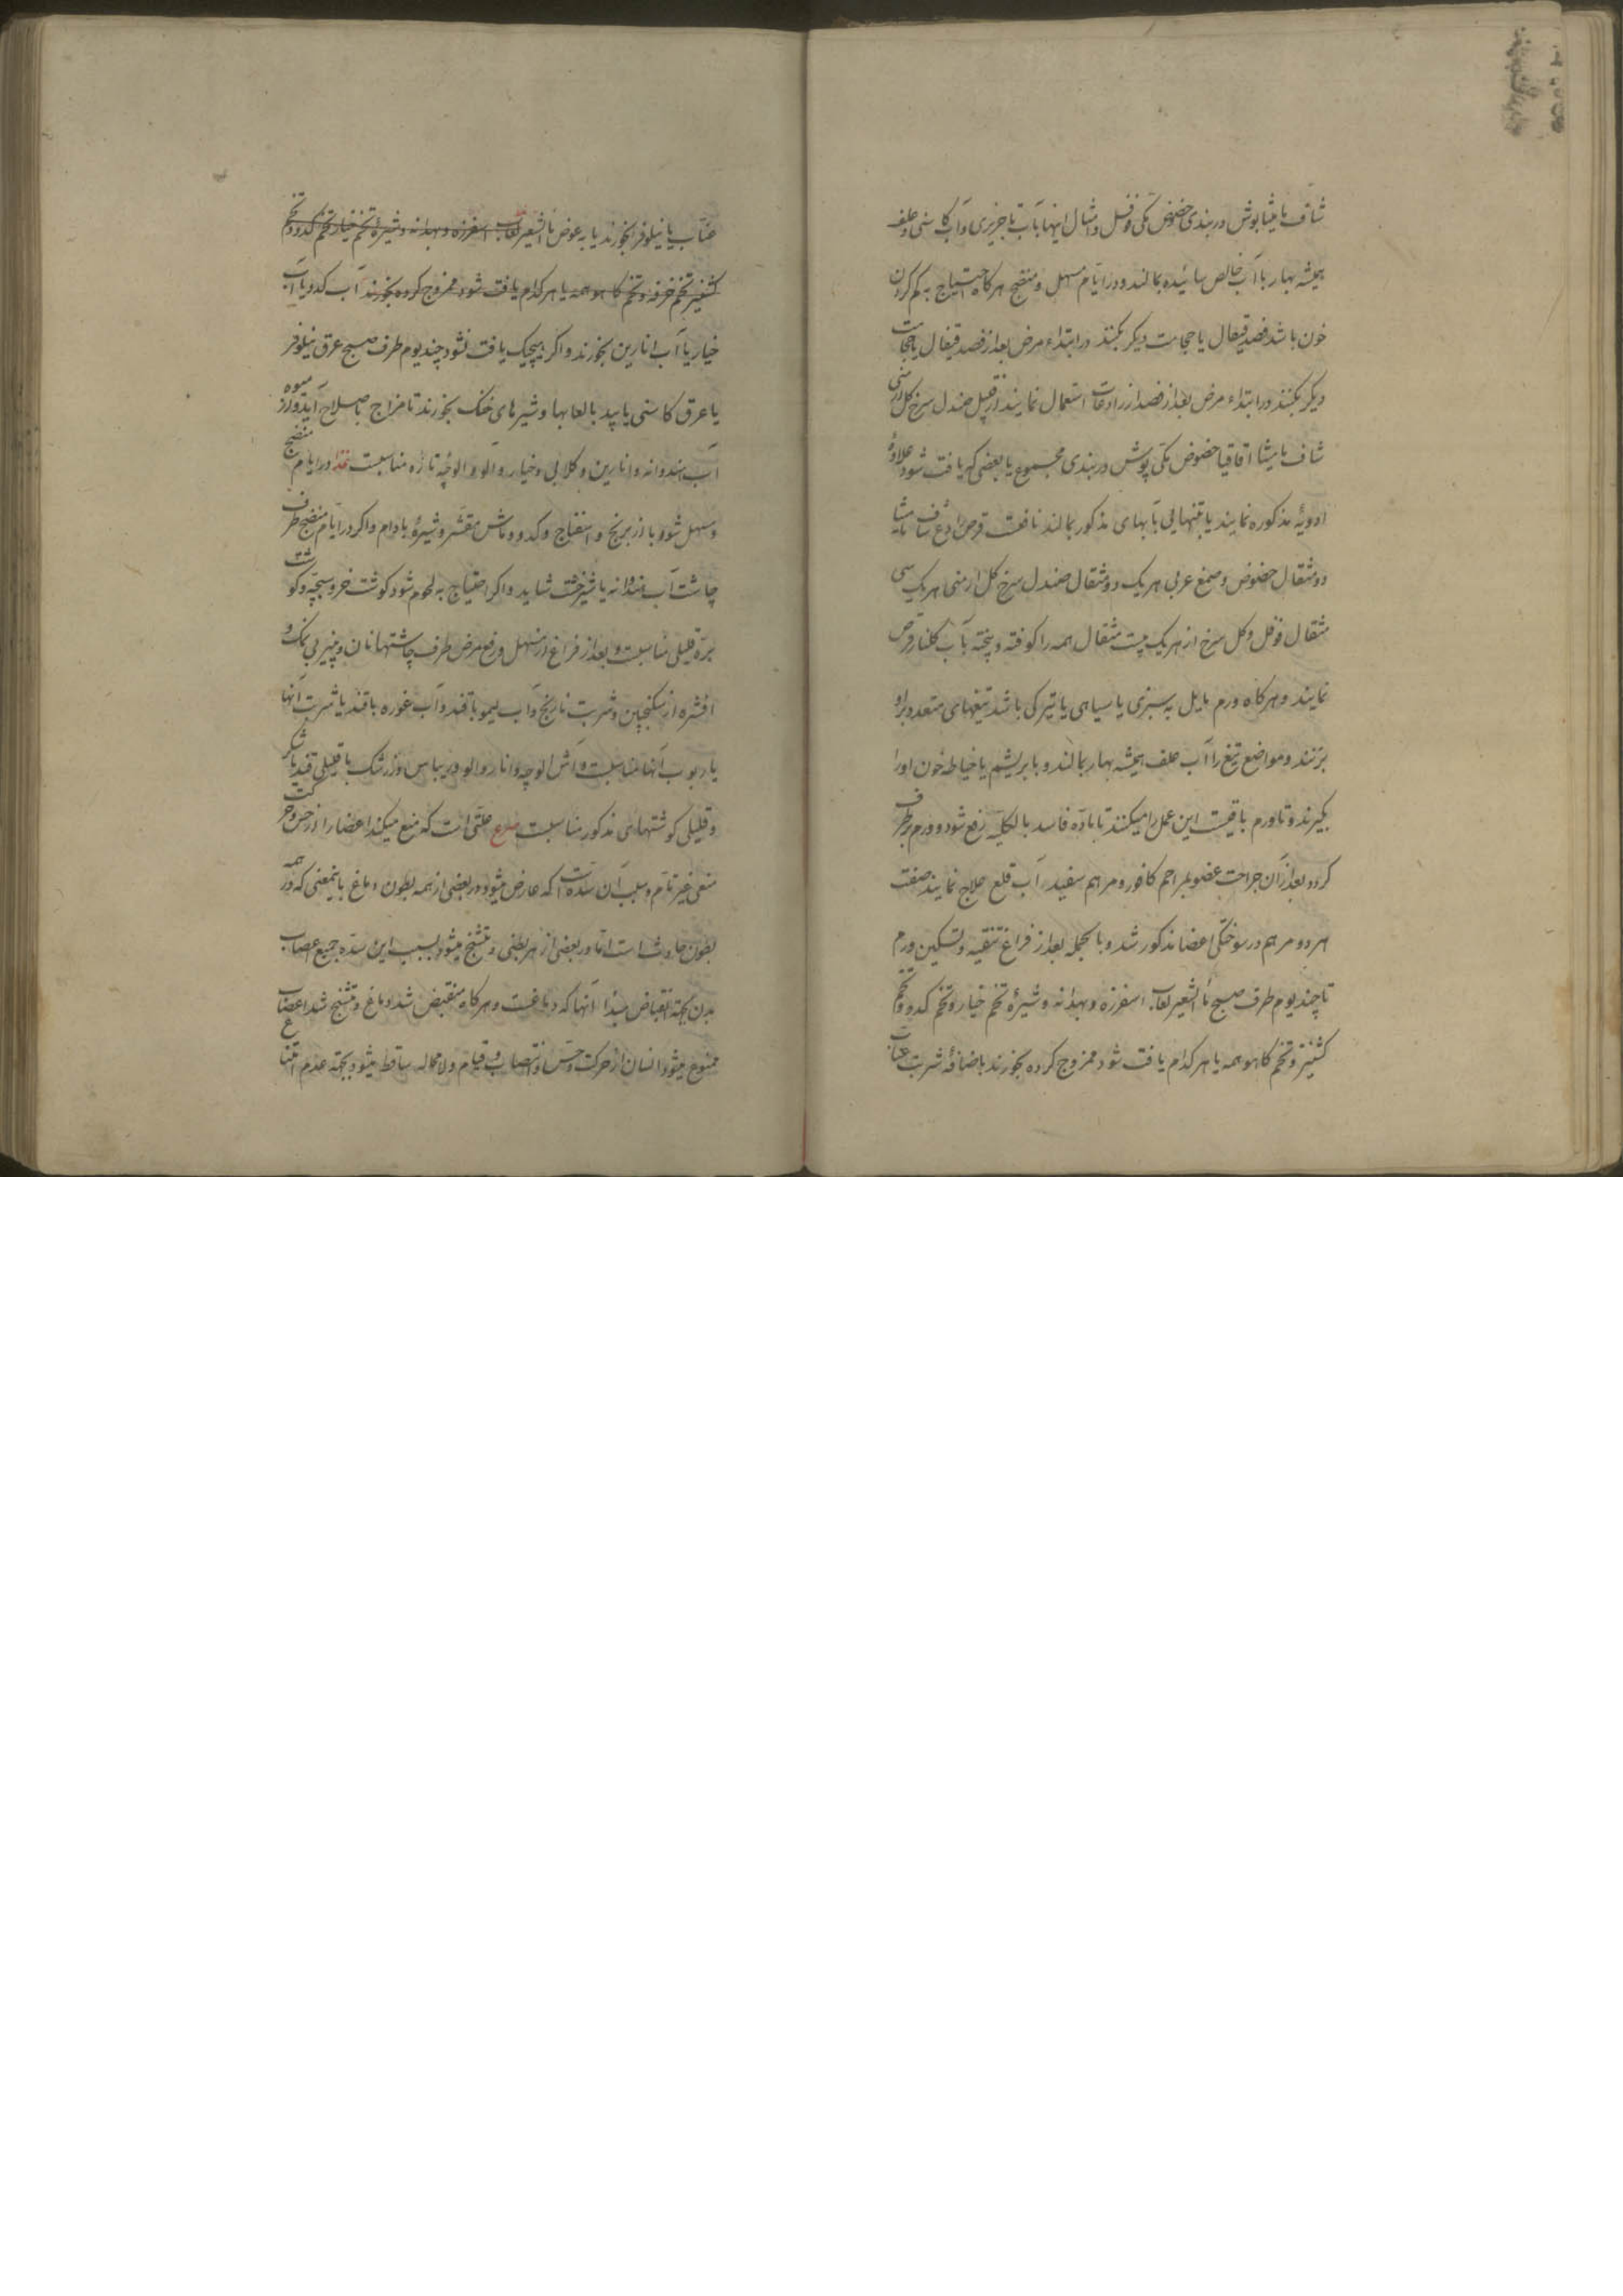 شاف مامیثا بوش دربندی حضض مکی فوفل و امثال اینها بآب تاجریزی و آب کاسنی و علف
همیشه بهار با آب خالص سائیده بمالند و در ایام مسهل و منضج هرکاه احتیاج به کم کردن
خون باشد فصد قیفال یا حجامت دیگر بکنند در ابتداء مرض بعد از فصد قیفال یا حجامت
دیگر بکنند در ابتداء مرض بعد از فصد از رادعات استعمال نمایند از قبیل صندل سرخ کل ارمنی
شاف مامیثا اقاقیا حضوض مکی پوش دربندی مجموع یا بعضی که یافت شود علاوهٔ
ادویهٔ مذکوره نمایند یا بتنهایی بآبهای مذکور بمالند نافعست قرص رادع شاف مامیثا
دو مثقال حضوض و صمغ عربی هریک دو مثقال صندل سرخ کل ارمنی هریک سی
مثقال فوفل و کل سرخ از هریک بیست مثقال همه را کوفته و پخته بآب کلنار قرص
نمایند و هرکاه ورم مایل به سبزی یا سیاهی یا تیرکی باشد تیغهای متعدد بر او
بزنند و مواضع تیغ را آب علف همیشه بهار بمالند و بابریشم یا خیاطه خون او را
بکیرند و تا ورم باقیست این عمل را میکنند تا ماده فاسد بالکلیه رفع شود و ورم برطرف
کردد بعد از آن جراحت عضو بمراحم کافور و مرهم سفید آب قلع علاج نمایند صفت
هر دو مرهم در سوختکی اعضا مذکور شد و بالجمله بعد از فراغ تنقیه و تسکین ورم
تا چند یوم طرف صبح ماءالشعیر لعاب اسفرزه و بهدانه و شیرهٔ تخم خیار و تخم کدو و تخم
کشنیز و تخم کاهو همه یا هر کدام یافت شود ممزوج کرده بخورند باضافهٔ شربت عناب
عناب یا نیلوفر بخورند یا به عوض ماءالشعیر لعاب اسفرزه و بهدانه و شیرهٔ تخم خیار تخم کدو و تخم
کشنیز تخم خرفه و تخم کاهو همه یا هر کدام یافت شود ممزوج کرده بخورند آب کدو یا آب
خیار یا آب انارین بخورند و اکر هیچیک یافت نشود چند یوم طرف صبح عرق نیلوفر
یا عرق کاسنی یا بید با لعابها و شیرهای خنک بخورند تا مزاج باصلاح آید و از میوه
آب هندوانه و انارین و کلابی و خیار و آلو و آلوچهٔ تازه مناسبست غذا در ایام منضج
و مسهل شوربا از برنج و اسفناج و کدو و ماش مقشر و شیرهٔ بادام و اکر در ایام منضج طرف
چاشت آب هندوانه یا شیرخشت شاید و اکر احتیاج به لحوم شود کوشت خروسبچه و کوشت
بره قلیلی مناسبست و بعد از فراغ از مسهل و رفع مرض طرف چاشتها نان و پنیر بی نمک و
افشره از سکنجبین و شربت نارنج و آب لیمو با قند و آب غوره با قند یا شربت آنها
یا ربوب آنها مناسبست و آش آلوچه و انار و آلو و ریباس و زرشک با قلیلی قند یا شکر
و قلیلی کوشتهای مذکور مناسبست صرع علتی است که منع میکند اعضا را از حس و حرکت
منعی غیر تام و سبب آن سده است که عارض میشود در بعضی از همه بطون دماغ باینمعنی که در همه
بطون حادث است اما در بعضی از هر بطنی و متشنج میشود بسبب این سده جمیع اعصاب
بدن بجهة انقباض مبدأ آنها که دماغست و هرکاه منقبض شد دماغ و متشنج شد اعصاب
ممنوع میشود انسان از حرکت و حس و انتصاب و قیام و لامحاله ساقط میشود بجهة عدم امتناع